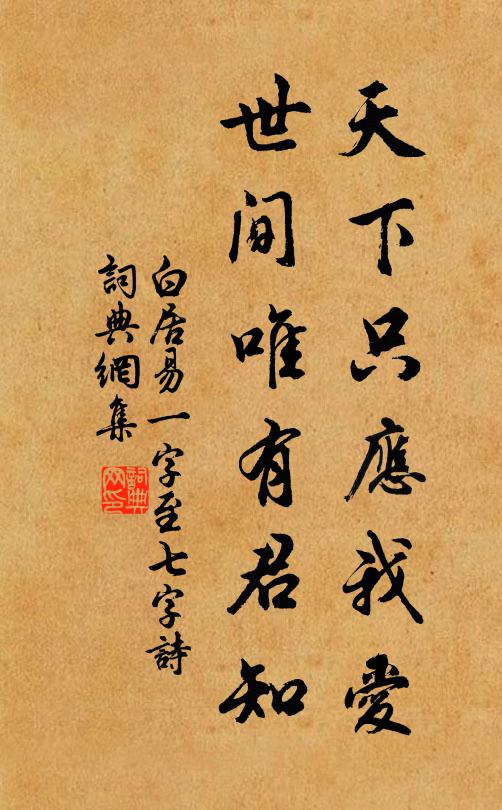 天下只應我愛
世間唯有君知
白居易一字至七字詩
詞典網集
詞典網印